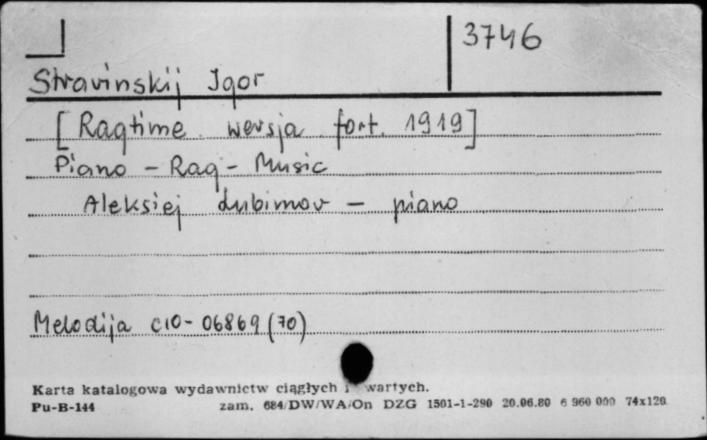 3746
Stravinskij Igor
[Ragtime wersja fort. 1919]
Piano - Rag - Music
Aleksiej Lubimov - piano
Melodija C10-06869 (70)
Karta katalogowa wydawnictw ciągłych i zwartych.
Pu-B-144 zam. 684/DW/WA/On DZG 1501-1-290 20.06.80 6 960 000 74x120